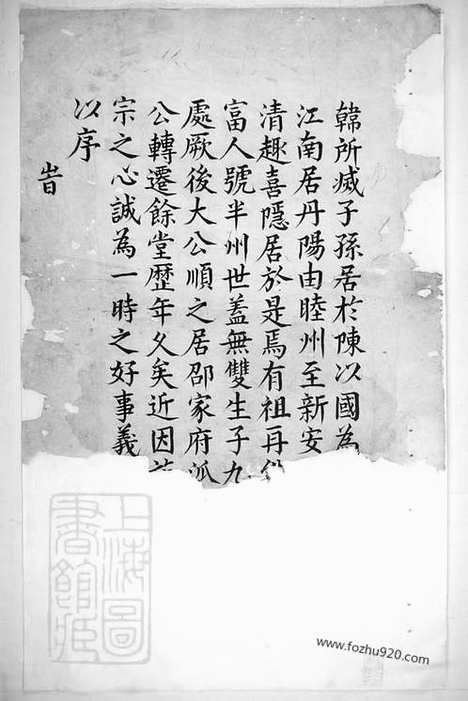 韓所滅子孫居於陳以國為
江南居丹陽由睦州至新安
清趣喜隱居於是焉有祖再
富人號半州世蓋無雙生子九
處厥後大公順之居邵家府派
公轉遷餘堂歷年久矣近因
宗之心誠為一時之好事義
以序
旹
上海圖
書館藏
www.fozhu920.com